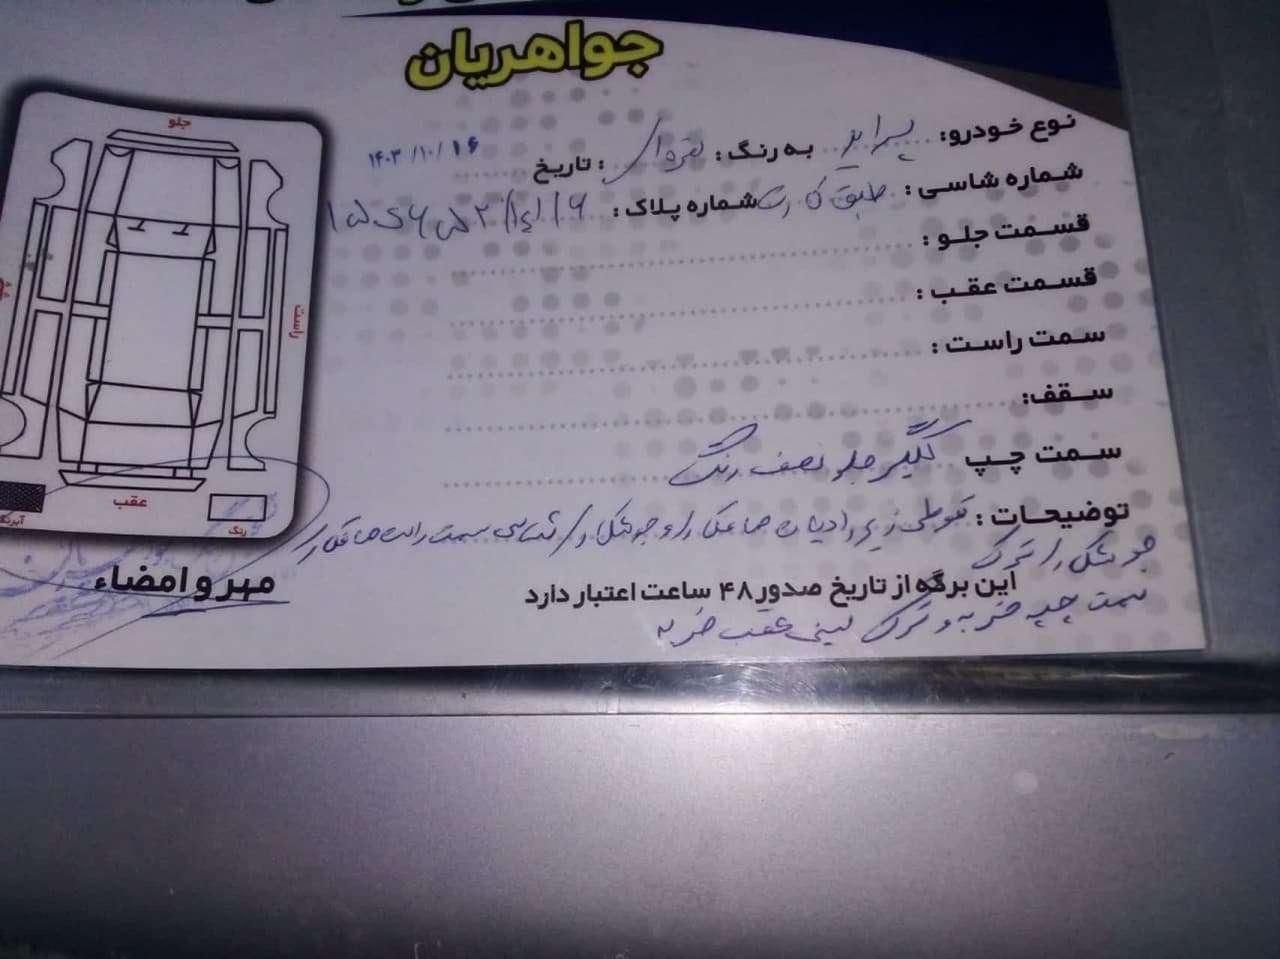 جواهریان
نوع خودرو: پراید به رنگ: نقره ای تاریخ: ۱۴۰۳/۱۰/۱۶
شماره شاسی: طبق کارت شماره پلاک:
قسمت جلو:
قسمت عقب:
سمت راست:
سقف:
سمت چپ گلگیر جلو نصف رنگ
توضیحات: قوطی زیر رادیات جوشکاری شاسی سمت راست
جوشکاری ترک
این برگه از تاریخ صدور ۴۸ ساعت اعتبار دارد
سمت چپ ضربه و ترک سینی عقب ضربه
جلو
راست
عقب
رنگ
آبرنگ
مهر و امضاء